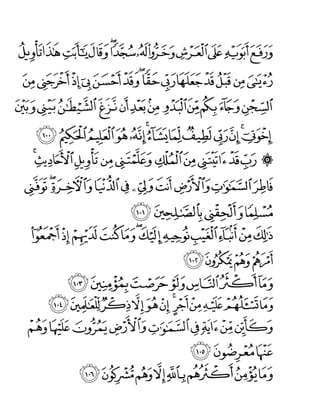 وَرَفَعَ أَبَوَيْهِ عَلَى ٱلْعَرْشِ وَخَرُّوا۟ لَهُۥ سُجَّدًۭا ۖ وَقَالَ يَـٰٓأَبَتِ هَـٰذَا تَأْوِيلُ
رُءْيَـٰىَ مِن قَبْلُ قَدْ جَعَلَهَا رَبِّى حَقًّۭا ۖ وَقَدْ أَحْسَنَ بِىٓ إِذْ أَخْرَجَنِى مِنَ
ٱلسِّجْنِ وَجَآءَ بِكُم مِّنَ ٱلْبَدْوِ مِنۢ بَعْدِ أَن نَّزَغَ ٱلشَّيْطَـٰنُ بَيْنِى وَبَيْنَ
إِخْوَتِىٓ ۚ إِنَّ رَبِّى لَطِيفٌۭ لِّمَا يَشَآءُ ۚ إِنَّهُۥ هُوَ ٱلْعَلِيمُ ٱلْحَكِيمُ ١٠٠
۞ رَبِّ قَدْ ءَاتَيْتَنِى مِنَ ٱلْمُلْكِ وَعَلَّمْتَنِى مِن تَأْوِيلِ ٱلْأَحَادِيثِ ۚ
فَاطِرَ ٱلسَّمَـٰوَٰتِ وَٱلْأَرْضِ أَنتَ وَلِىِّۦ فِى ٱلدُّنْيَا وَٱلْـَٔاخِرَةِ ۖ تَوَفَّنِى
مُسْلِمًۭا وَأَلْحِقْنِى بِٱلصَّـٰلِحِينَ ١٠١
ذَٰلِكَ مِنْ أَنۢبَآءِ ٱلْغَيْبِ نُوحِيهِ إِلَيْكَ ۖ وَمَا كُنتَ لَدَيْهِمْ إِذْ أَجْمَعُوٓا۟
أَمْرَهُمْ وَهُمْ يَمْكُرُونَ ١٠٢
وَمَآ أَكْثَرُ ٱلنَّاسِ وَلَوْ حَرَصْتَ بِمُؤْمِنِينَ ١٠٣
وَمَا تَسْـَٔلُهُمْ عَلَيْهِ مِنْ أَجْرٍ ۚ إِنْ هُوَ إِلَّا ذِكْرٌۭ لِّلْعَـٰلَمِينَ ١٠٤
وَكَأَيِّن مِّنْ ءَايَةٍۢ فِى ٱلسَّمَـٰوَٰتِ وَٱلْأَرْضِ يَمُرُّونَ عَلَيْهَا وَهُمْ
عَنْهَا مُعْرِضُونَ ١٠٥
وَمَا يُؤْمِنُ أَكْثَرُهُم بِٱللَّهِ إِلَّا وَهُم مُّشْرِكُونَ ١٠٦